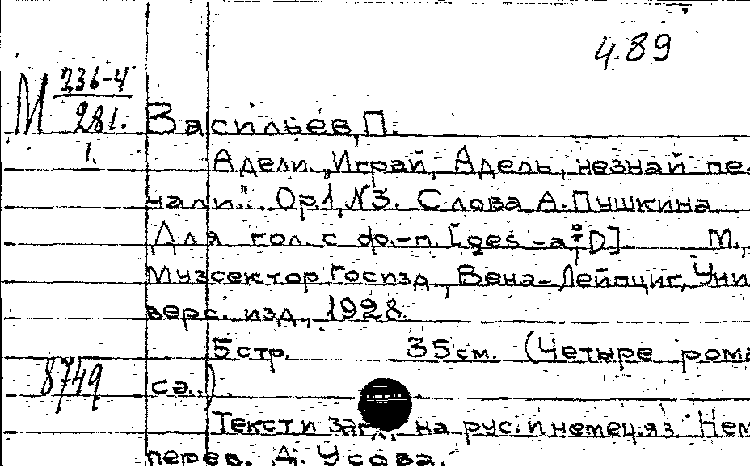 4.89
М 236-4
281.
1.
Васильев, П.
Адели. „Играй, Адель, незнай пе-
чали". Ор1, N3. Слова А. Пушкина
Для гол. с ф.-п. [ges - a D] М.,
Музсектор Госизд, Вена-Лейпциг, Уни
верс. изд., 1928.
5 стр. 35 см. (Четыре рома
са.)
8749
Текст и загл, на рус. и немец. яз. Нем
перев. Д. Усова.